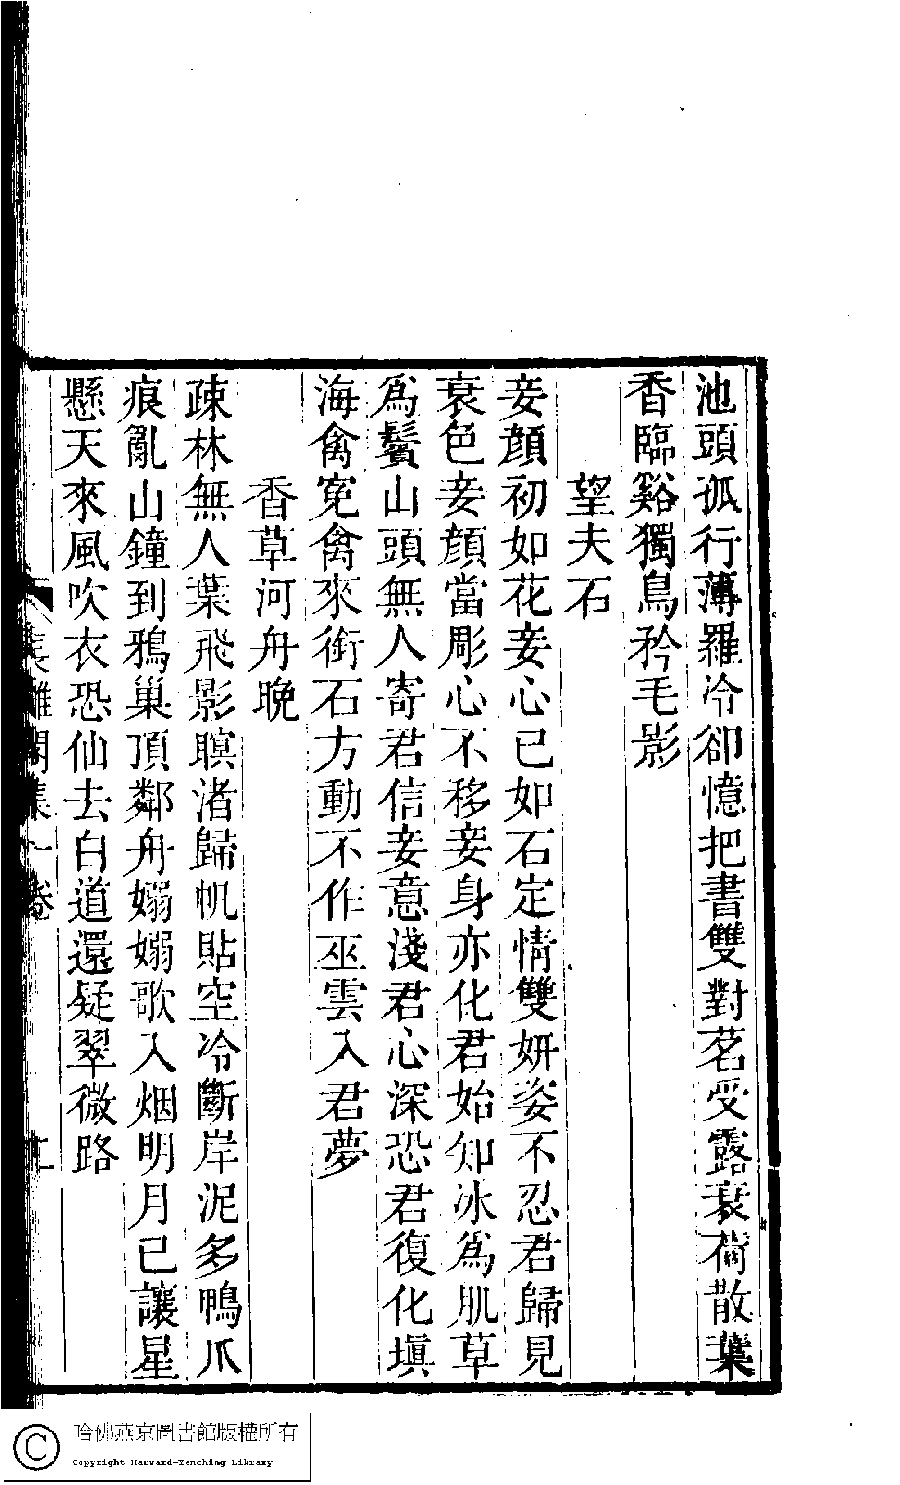 池頭孤行薄羅冷卻憶把書雙對茗受露衰荷散葉
香臨谿獨鳥矜毛影
望夫石
妾顔初如花妾心已如石定情雙妍姿不忍君歸見
衰色妾顔當彫心不移妾身亦化君始知冰爲肌草
爲鬢山頭無人寄君信妾意淺君心深恐君復化塡
海禽寃禽來銜石方動不作巫雲入君夢
香草河舟晚
疎林無人葉飛影瞑渚歸帆貼空冷斷岸泥多鴨爪
痕亂山鐘到鴉巢頂鄰舟嫋嫋歌入烟明月已讓星
懸天來風吹衣恐仙去白道還疑翠微路
長離閣集一卷
哈佛燕京圖書館版權所有
Copyright Harvard-Yenching Library